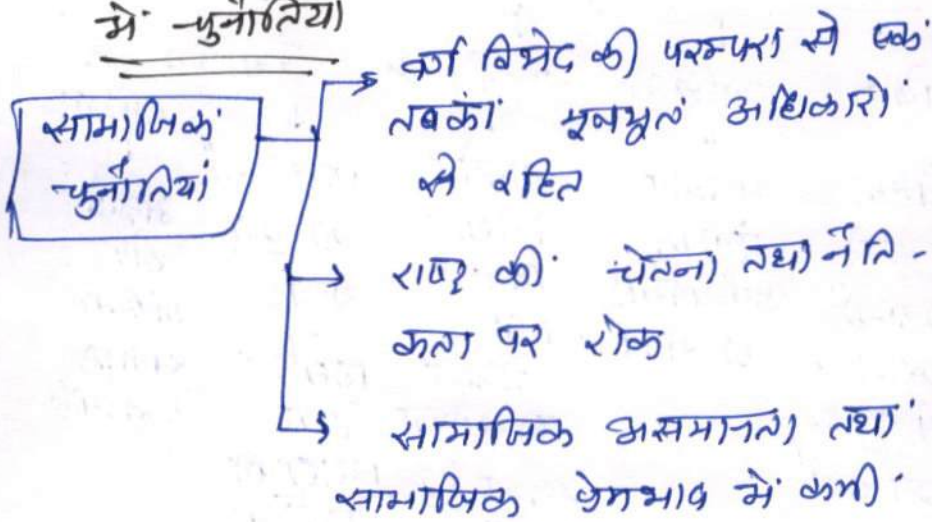 में चुनौतियां
सामाजिक
चुनौतियां
वर्ग विभेद की परम्परा से एक
तबका मूलभूत अधिकारों
से रहित
राष्ट्र की चेतना तथा नैति-
कता पर रोक
सामाजिक असमानता तथा
सामाजिक प्रेमभाव में कमी